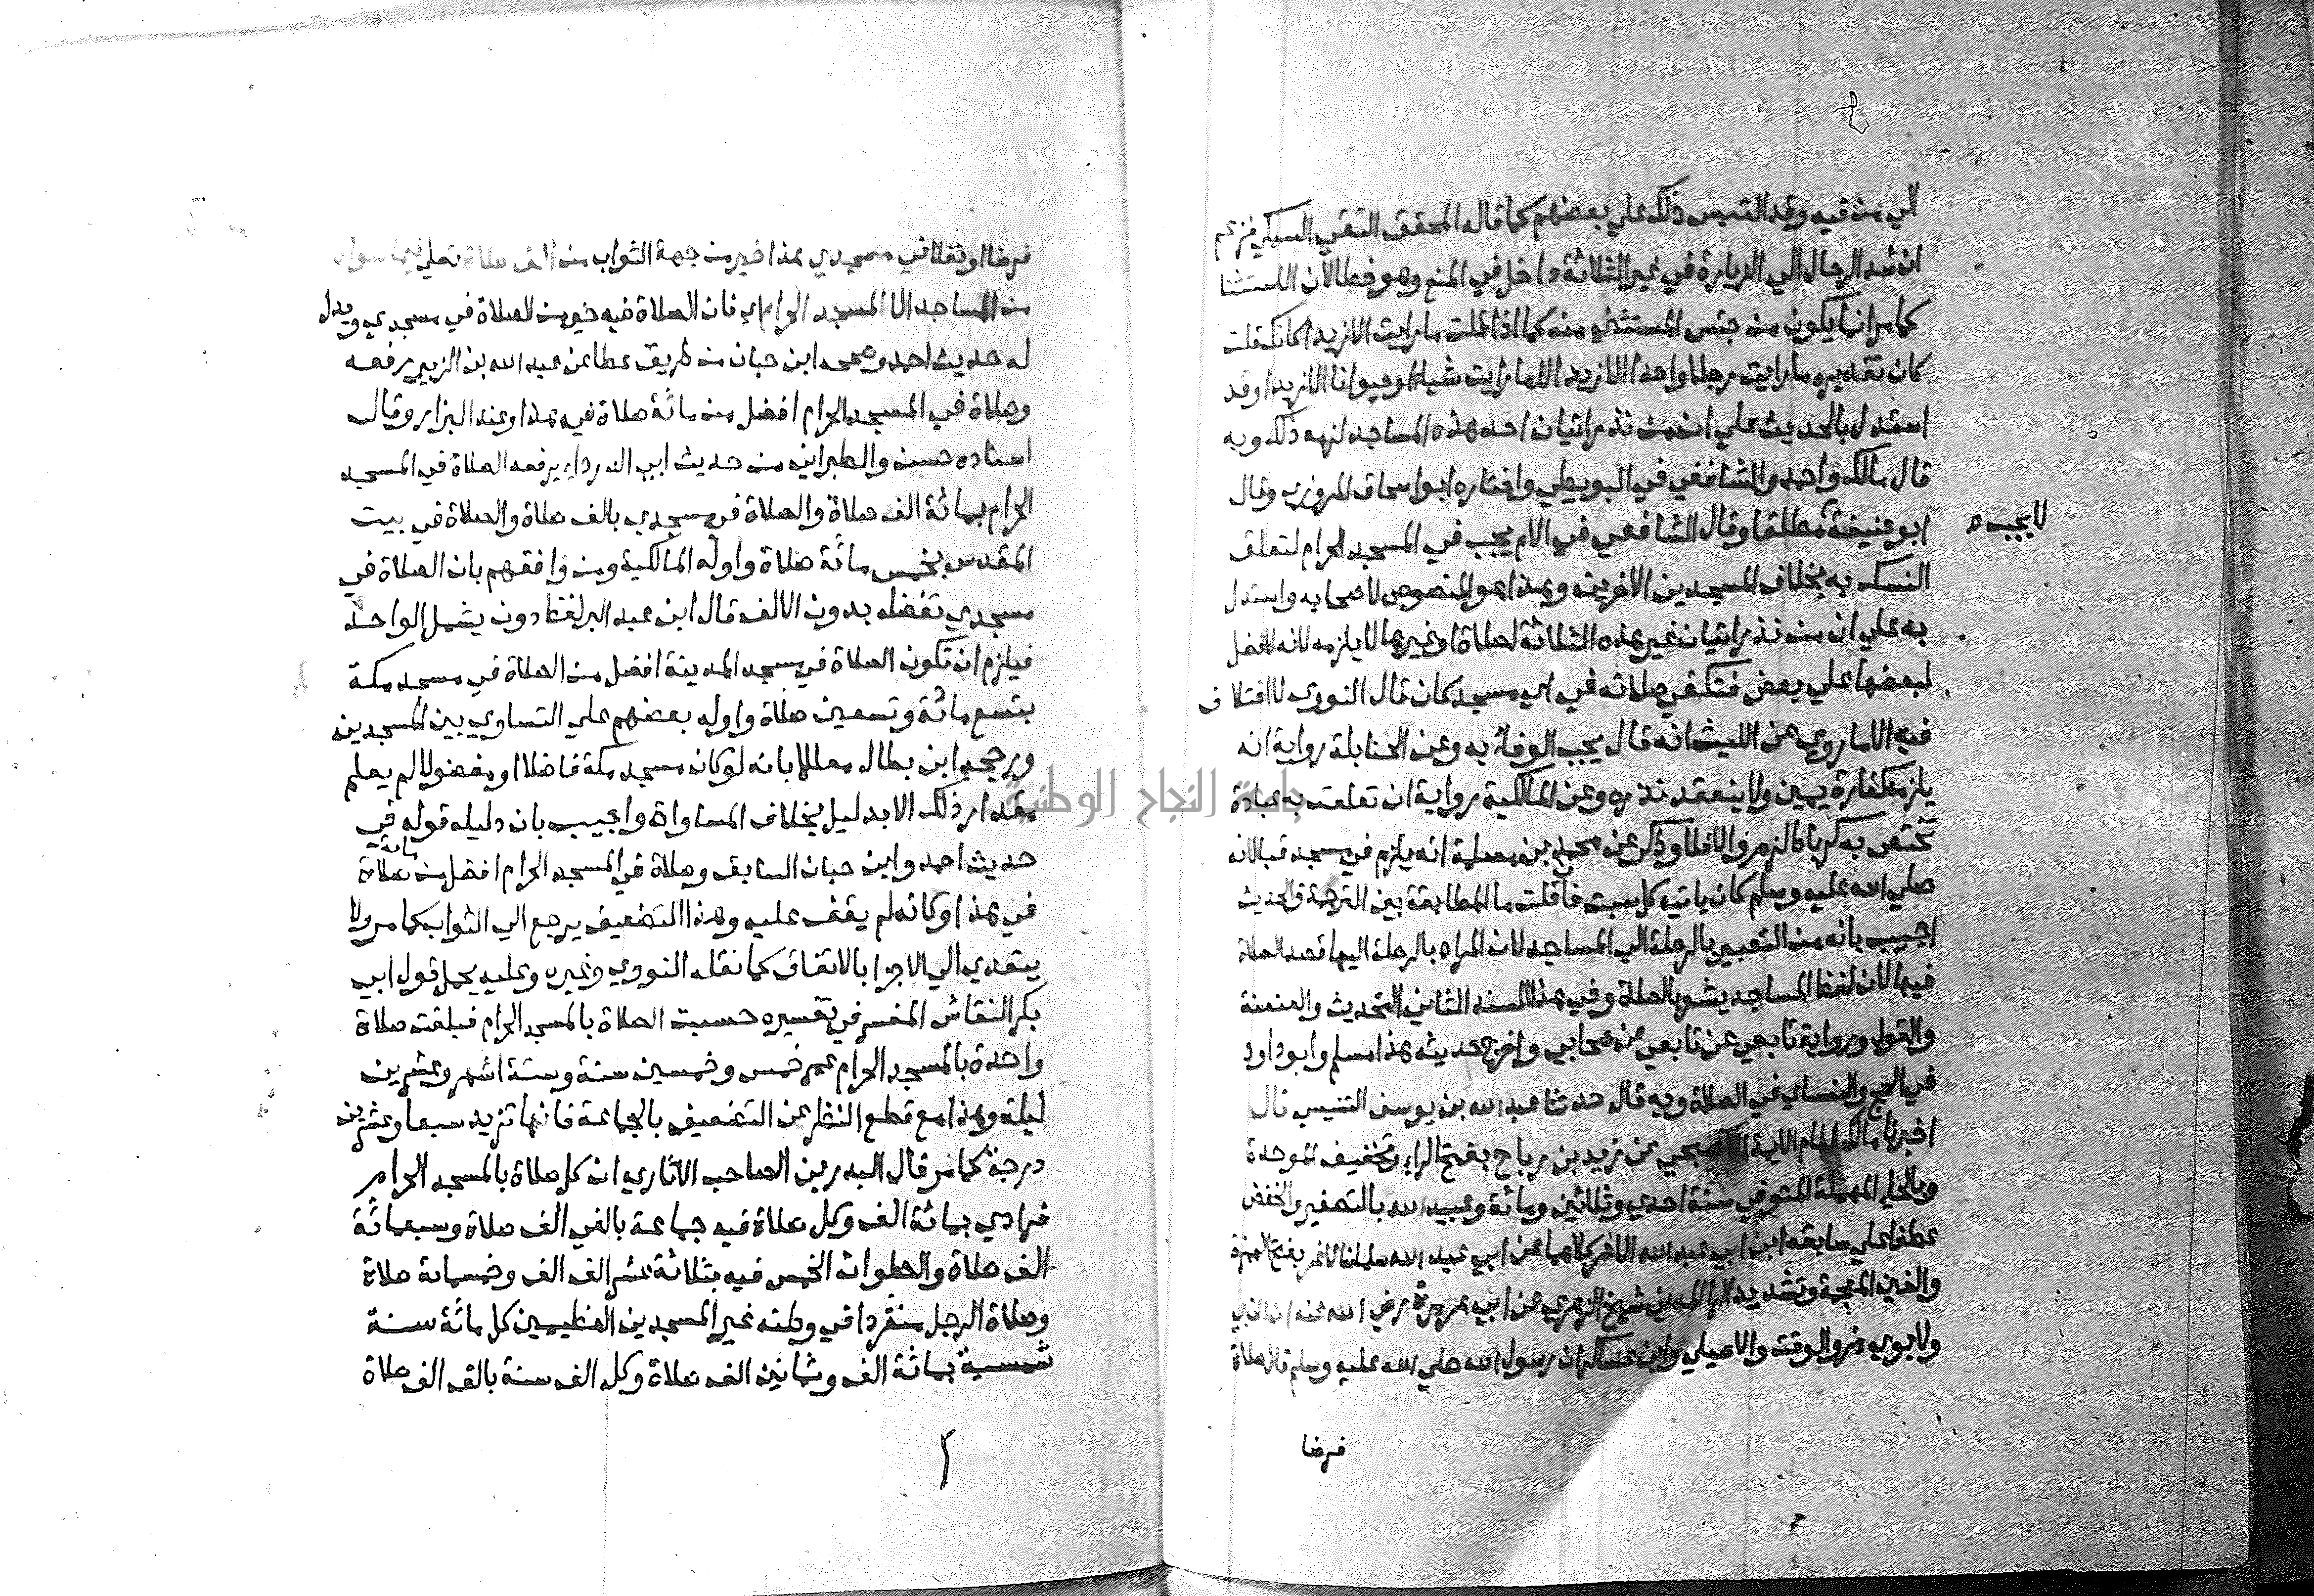 الي من فيه وقد التبس ذلك علي بعضهم كما قاله المحقق التقي السبكي فزعم
ان شد الرحال الي الزيارة في غير الثلاثة داخل في المنع وهو خطا لان الاستثنا
كما مر انما يكون من جنس المستثني منه كما اذا قلت ما رايت الا زيدا كانك قلت
كان تقديره ما رايت رجلا واحدا الا زيدا لا ما رايت شيا او حيوانا الا زيدا وقد
استدل بالحديث علي ان من نذر اتيان احد هذه المساجد لزمه ذلك وبه
قال مالك واحمد والشافعي في البويطي واختاره ابو اسحاق المروزي وقال
ابو حنيفة مطلقا وقال الشافعي في الام يجب في المسجد الحرام لتعلق
لا يجب
النسك به بخلاف المسجدين الاخرين وهذا هو المنصوص لاصحابه واستدل
به علي ان من نذر اتيان غير هذه الثلاثة لصلاة او غيرها لا يلزمه لانه لا فضل
لبعضها علي بعض فتكفي صلاته في اي مسجد كان قال النووي لا اختلاف
فيه الا ما روي عن الليث انه قال يجب الوفا به وعن الحنابلة رواية انه
يلزمه كفارة يمين ولا ينعقد نذره وعن المالكية رواية ان تعلقت به عبادة
تختص به كرباط لزم والا فلا وذكر عن محمد بن مسلمة انه يلزم في مسجد قبا لانه
صلي الله عليه وسلم كان ياتيه كل سبت فان قلت ما المطابقة بين الترجمة والحديث
اجيب بانه من التعبير بالرحلة الي المساجد لان المراد بالرحلة اليها قصد الصلاة
فيها لان لفظ المساجد يشعر بالصلاة وفي هذا السند الثاني التحديث والعنعنة
والقول ورواية تابعي عن تابعي عن صحابي واخرج حديثه هذا مسلم وابو داود
في الحج والنساي في الصلاة وبه قال حدثنا عبد الله بن يوسف التنيسي قال
اخبرنا مالك امام الايمة الاصبحي عن زيد بن رباح بفتح الراء وتخفيف الموحدة
وبالحاء المهملة المتوفي سنة احدي وثلاثين ومائة وعبيد الله بالتصغير والخفض
عطفا علي سابقه ابن ابي عبد الله الاغر كلاهما عن ابي عبد الله سلمان الاغر بفتح الهمزة
والغين المعجمة وتشديد الرا المدني شيخ الزهري عن ابي هريرة رضي الله عنه ان النبي
ولابوي ذر والوقت والاصيلي وابن عساكر ان رسول الله صلي الله عليه وسلم قال صلاة
فرضا
فرضا او نفلا في مسجدي هذا خير من جهة الثواب من الف صلاة تصلي فيما سواه
من المساجد الا المسجد الحرام اي فان الصلاة فيه خير من الصلاة في مسجدي ويدل
له حديث احمد وصححه ابن حبان من طريق عطا عن عبد الله بن الزبير رفعه
وصلاة في المسجد الحرام افضل من مائة صلاة في هذا وعند البزار وقال
اسناده حسن والطبراني من حديث ابي الدرداء يرفعه الصلاة في المسجد
الحرام بمائة الف صلاة والصلاة في مسجدي بالف صلاة والصلاة في بيت
المقدس بخمس مائة صلاة واوله المالكية ومن وافقهم بان الصلاة في
مسجدي تفضله بدون الالف قال ابن عبد البر لفظ دون يشمل الواحد
فيلزم ان تكون الصلاة في مسجد المدينة افضل من الصلاة في مسجد مكة
بتسع مائة وتسعين صلاة واوله بعضهم علي التساوي بين المسجدين
ورجحه ابن بطال معللا بانه لو كان مسجد مكة فاضلا او مفضولا لم يعلم
مقدار ذلك الا بدليل بخلاف المساواة واجيب بان دليله قوله في
حديث احمد وابن حبان السابق وصلاة في المسجد الحرام افضل من مائة صلاة
في هذا وكانه لم يقف عليه وهذا التضعيف يرجع الي الثواب كما مر ولا
يتعدي الي الاجزا بالاتفاق كما نقله النووي وغيره وعليه يحمل قول ابي
بكر النقاش المفسر في تفسيره حسبت الصلاة بالمسجد الحرام فبلغت صلاة
واحدة بالمسجد الحرام عمر خمس وخمسين سنة وستة اشهر وعشرين
ليلة وهذا مع قطع النظر عن التضعيف بالجماعة فانها تزيد سبعا وعشرين
درجة كما مر قال البدر بن الصاحب الاثاري ان كل صلاة بالمسجد الحرام
فرادي بمائة الف وكل صلاة فيه جماعة بالفي الف صلاة وسبعمائة
الف صلاة والصلوات الخمس فيه بثلاثة عشر الف الف وخمسمائة صلاة
وصلاة الرجل منفردا في وطنه غير المسجدين العظيمين كل مائة سنة
شمسية بمائة الف وثمانين الف صلاة وكل الف سنة بالف الف صلاة
جامعة النجاح الوطنية